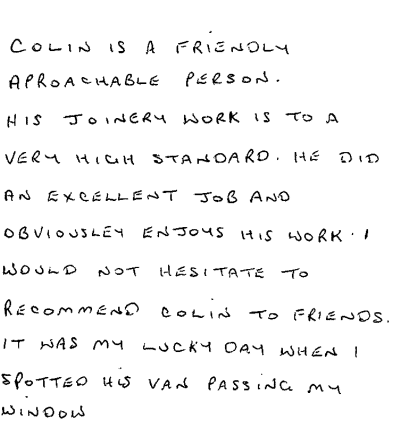 COLIN IS A FRIENDLY
APROACHABLE PERSON.
HIS JOINERY WORK IS TO A
VERY HIGH STANDARD. HE DID
AN EXCELLENT JOB AND
OBVIOUSLEY ENJOYS HIS WORK. I
WOULD NOT HESITATE TO
RECOMMEND COLIN TO FRIENDS.
IT WAS MY LUCKY DAY WHEN I
SPOTTED HIS VAN PASSING MY
WINDOW